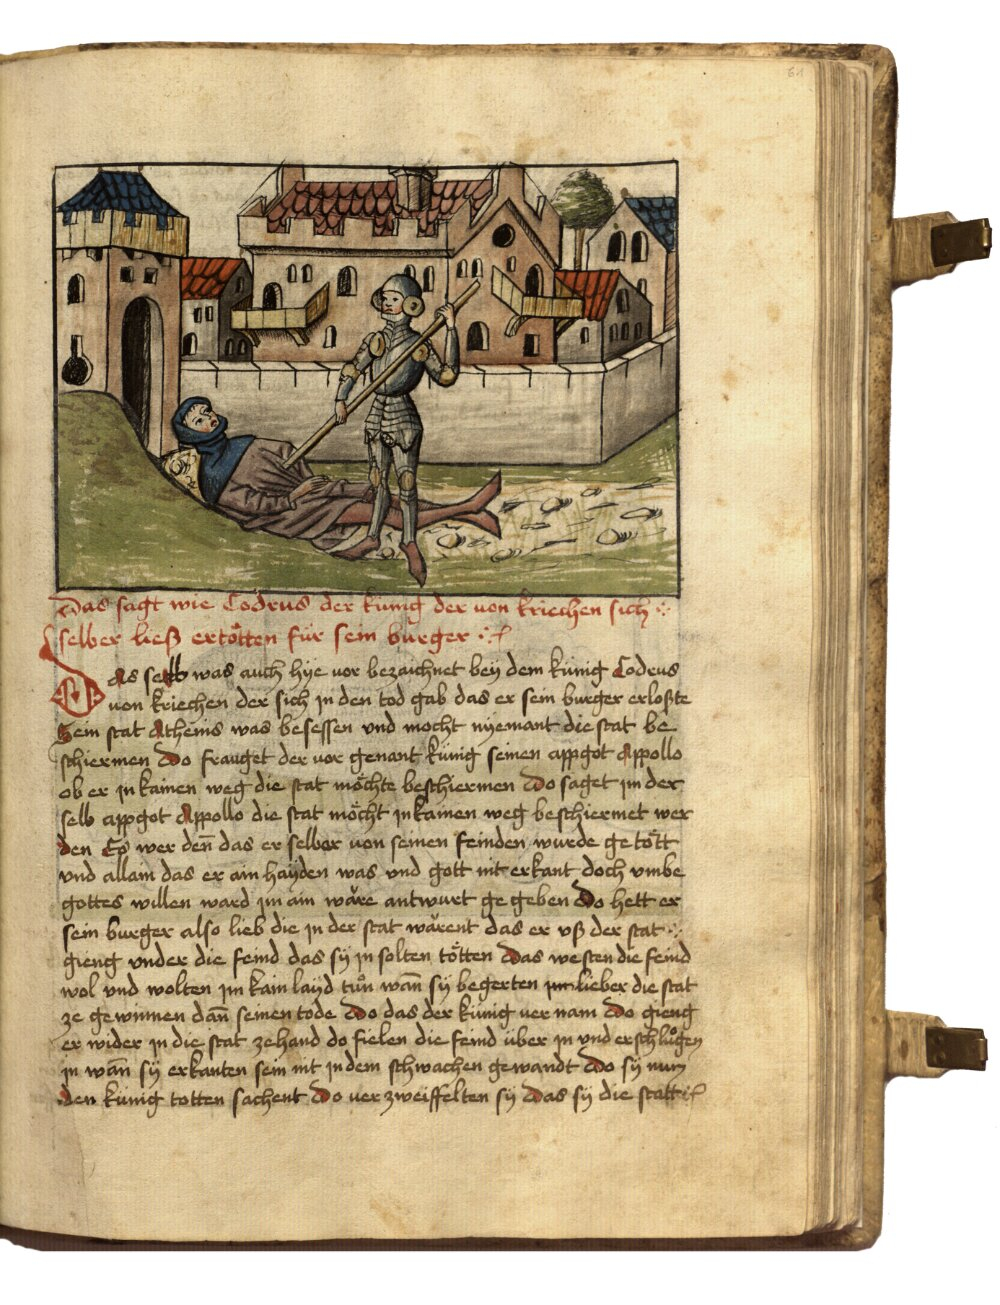 61
Das sagt wie Codrus der künig der von kriechen sich
selber ließ ertötten für sein burger
Das selb was auch hye vor bezaichnet bey dem künig Codrus
von kriechen der sich jn den tod gab das er sein burger erloßte
Sein stat Athenis was besessen vnd mocht nyemant die stat be
schiermen Do frauget der vor genant künig seinen appgot Appollo
ob er jn kainen weg die stat möchte beschiermen Do saget jm der
selb appgot Appollo die stat möcht jn kainen weg beschiermet wer
den Es wer den̄ das er selber von seinen feinden wurde getött
vnd allain das er ain hayden was vnd gott nit erkant doch vmbe
gottes willen ward jm ain wăre antwurt ge geben Do hett er
sein burger also lieb die jn der stat wărent das er vß der stat
gieng vnder die feind das sÿ jn solten tötten Das westen die feind
wol vnd wolten jm kain layd tůn wan̄ sÿ begerten jm lieber die stat
ze gewinnen dan̄ seinen tode Do das der künig ver nam Do gieng
er wider jn die stat zehand do fielen die feind über jn vnd erschlůgen
jn wan̄ sÿ erkanten sein nit jn dem schwachen gewandt Do sÿ nun
den künig totten sachent Do ver zweiffelten sÿ Das sÿ die statt